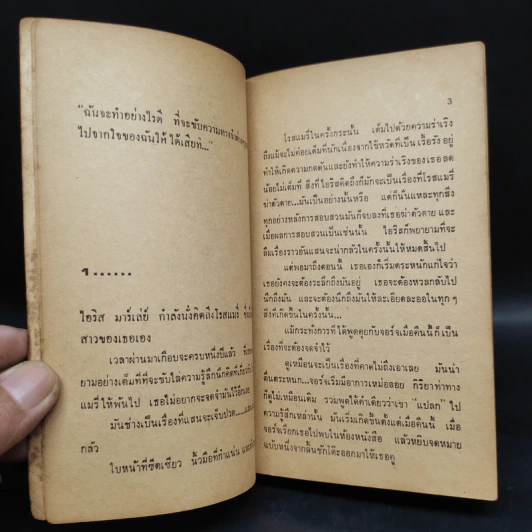 “ฉันจะทำอย่างไรดี ที่จะขับความทรงจำต่างๆ
ไปจากใจของฉันให้ได้เสียที...”
๑......
ไอริส มาร์เล่ย์ กำลังนั่งคิดถึงโรสแมรี่
สาวของเธอเอง
เวลาผ่านมาเกือบจะครบหนึ่งปีแล้ว
ยามอย่างเต็มที่ที่จะขับไล่ความรู้สึกนึกคิดที่เกี่ยวกับ
แมรี่ให้พ้นไป เธอไม่อยากจะจดจำมันไว้อีกเลย
มันช่างเป็นเรื่องที่แสนจะเจ็บปวด.....
กลัว
ใบหน้าที่ซีดเซียว นิ้วมือที่กำแน่น
3
โรสแมรี่ในครั้งกระนั้น เต็มไปด้วยความร่าเริง
ถึงแม้จะไม่ค่อยเต็มที่นักเนื่องจากไข้หวัดที่เป็นเรื้อรังอยู่
ทำให้เกิดความกดดันและยังทำให้ความร่าเริงของเธอลด
น้อยไม่เต็มที่ สิ่งที่ไอริสคิดถึงก็มักจะเป็นเรื่องที่โรสแมรี่
ฆ่าตัวตาย...มันเป็นอย่างนั้นหรือ แต่ก็นั่นแหละทุกสิ่ง
ทุกอย่างหลังการสอบสวนมันก็จบลงที่เธอฆ่าตัวตาย และ
เมื่อผลการสอบสวนเป็นเช่นนั้น ไอริสก็พยายามที่จะ
ลืมเรื่องราวอันแสนจะน่ากลัวในครั้งนั้นให้หมดสิ้นไป
แต่พอมาถึงตอนนี้ เธอเองก็เริ่มตระหนักแก่ใจว่า
เธอยังคงจะต้องระลึกถึงมันอยู่ เธอจะต้องหวลกลับไป
นึกถึงมัน และจะต้องนึกถึงมันให้ละเอียดละออในทุก ๆ
สิ่งที่เกิดขึ้นในครั้งนั้น...
แม้กระทั่งการที่ได้พูดคุยกับจอร์จเมื่อคืนนี้ก็เป็น
เรื่องที่จะต้องจดจำไว้
ดูเหมือนจะเป็นเรื่องที่คาดไม่ถึงเอาเลย มันน่า
ตื่นตระหนก...จอร์จเริ่มมีอาการเหม่อลอย กิริยาท่าทาง
ก็ดูไม่เหมือนเดิม รวมพูดได้คำเดียวว่าเขา "แปลก" ไป
ความรู้สึกเหล่านั้น มันเริ่มเกิดขึ้นตั้งแต่เมื่อคืนนี้ เมื่อ
จอร์จเรียกเธอไปพบในห้องหนังสือ แล้วหยิบจดหมาย
ฉบับหนึ่งจากลิ้นชักโต๊ะออกมาให้เธอดู